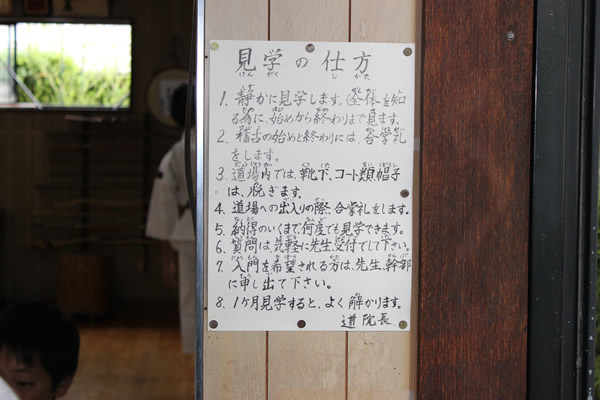 見学の仕方
1. 静かに見学します。(全体を知
る為に、始めから終わりまで見ます。
2. 稽古の始めと終わりには、合掌礼
をします。
3. 道場内では、靴下、コート類、帽子
は、脱ぎます。
4. 道場への出入りの際、合掌礼をします。
5. 納得のいくまで、何度でも見学できます。
6. 質問は、気軽に先生、受付でして下さい。
7. 入門を希望される方は、先生、幹部
に申し出て下さい。
8. 1ヶ月見学すると、よく解かります。
道院長